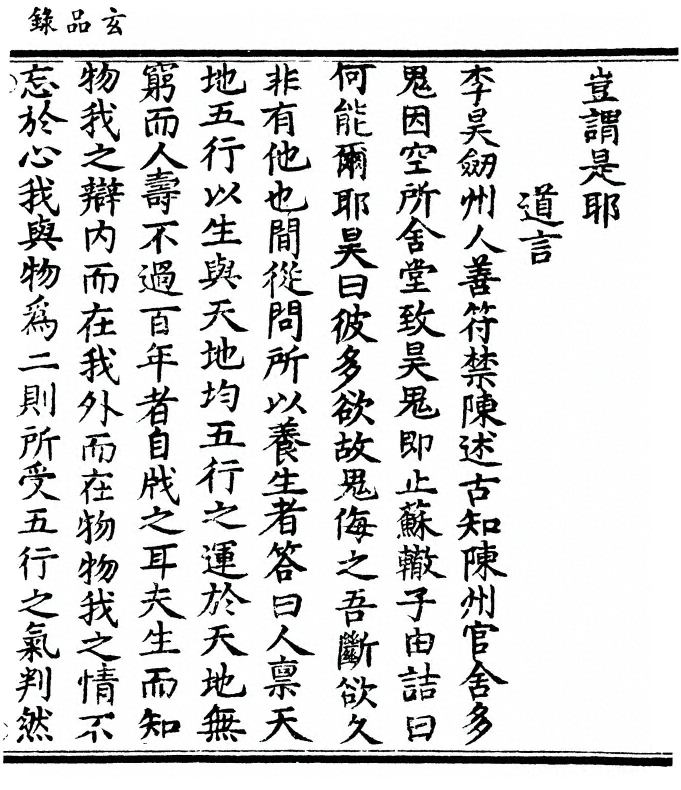 玄品録
豈謂是耶
道言
李昊劒州人善符禁陳述古知陳州官舍多
鬼因空所舍堂致昊鬼即止蘇轍子由詰曰
何能爾耶昊曰彼多欲故鬼侮之吾斷欲久
非有他也間從問所以養生者答曰人禀天
地五行以生與天地均五行之運於天地無
窮而人壽不過百年者自戕之耳夫生而知
物我之辯内而在我外而在物物我之情不
忘於心我與物爲二則所受五行之氣判然